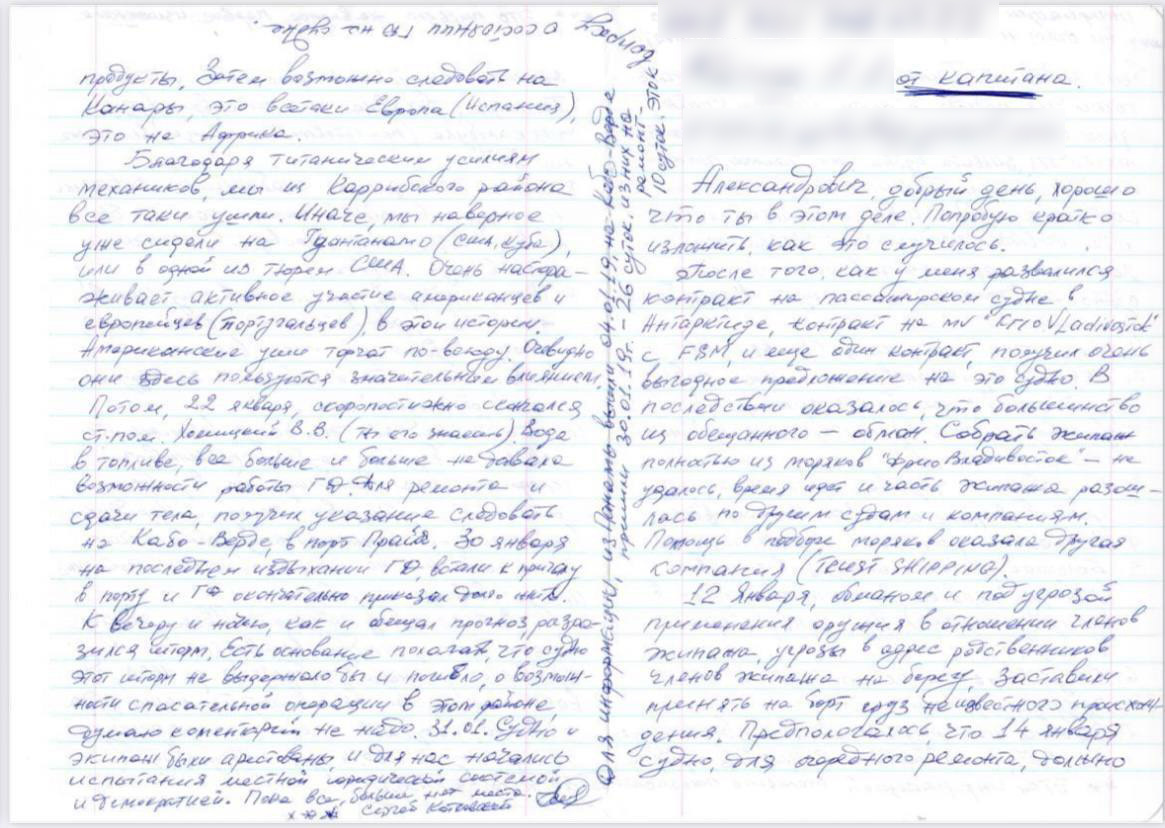 от капитана.
Александрович, добрый день, хорошо
что ты в этом деле. Попробую кратко
изложить, как это случилось.
После того, как у меня развалился
контракт на пассажирском судне в
Антарктиде, контракт на mv "Frio Vladivostok"
с FSM, и еще один контракт, получил очень
выгодное предложение на это судно. В
последствии оказалось, что большинство
из обещанного — обман. Собрать экипаж
полностью из моряков "Фрио Владивосток" — не
удалось, время идет и часть экипажа разош-
лась по другим судам и компаниям.
Помощь в подборе моряков оказала другая
компания (TRUST SHIPPING).
12 Января, обманом и под угрозой
применения оружия в отношении членов
экипажа, угрозы в адрес родственников
членов экипажа на берегу, заставили
принять на борт груз неизвестного происхож-
дения. Предпологалось, что 14 января
судно, для очередного ремонта, должно
продукты, Затем возможно следовать на
Канары, это всетаки Европа (Испания),
это не Африка.
Благодаря титаническим усилиям
механиков, мы из Каррибского района
все таки ушли. Иначе, мы наверное
уже сидели на Гуантанамо (США, Куба),
или в одной из тюрем США. Очень настора-
живает активное участие американцев и
европейцев (португальцев), в этой истории.
Американские уши торчат по-всюду. Очевидно
они здесь пользуются значительным влиянием.
Потом, 22 января, скоропостижно скончался
ст.пом. В.В. (ты его знаешь). Вода
в топливе, все больше и больше не давала
возможности работы ГД. Для ремонта и
сдачи тела, получил указание следовать
на Кабо-Верде, в порт Прайа. 30 января
на последнем издыхании ГД, встали к причалу
в порту и ГД окончательно приказал долго жить.
К вечеру и ночью, как и обещал прогноз, разра-
зился шторм. Есть основание полагать, что судно
этот шторм не выдержало бы и погибло, о возмож-
ности спасательной операции в этом районе
думаю коментарий не надо. 31.01. Судно и
экипаж были арестованы, и для нас начались
испытания местной юридической системой
и демократией. Пока все, больше нет места.
Сергей
Для информации, из Панамы вышли 04.01.19, на Кабо-Верде
пришли 30.01.19г. — 26 суток. из них на
ремонт
10 суток. Эток